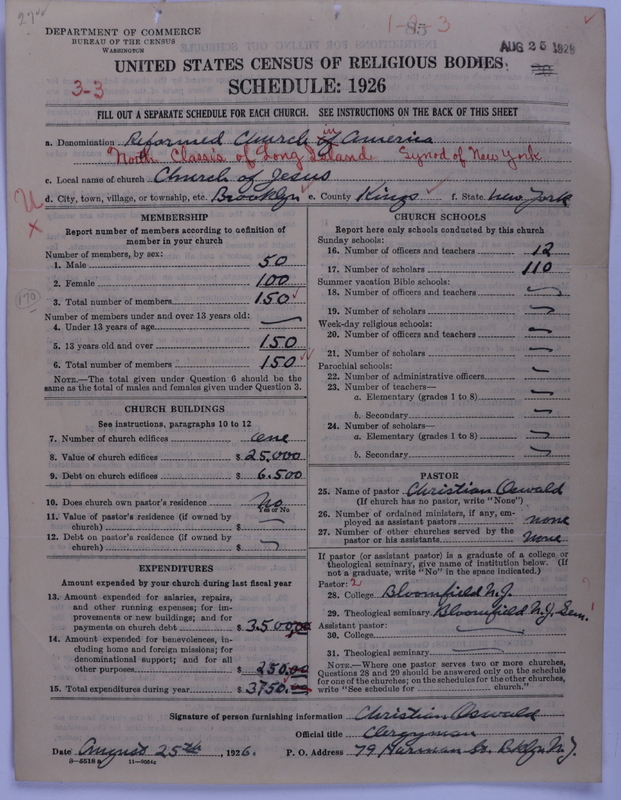 1-  3
85
DEPARTMENT OF COMMERCE
BUREAU OF THE CENSUS
WASHINGTON
AUG 26 1926
UNITED STATES CENSUS OF RELIGIOUS BODIES
3-3
SCHEDULE: 1926
FILL OUT A SEPARATE SCHEDULE FOR EACH CHURCH. SEE INSTRUCTIONS ON THE BACK OF THIS SHEET
a. Denomination Reformed Church in America
North Classis of Long Island. Synod of New York
c. Local name of church Church of Jesus
d. City, town, village, or township, etc. Brooklyn e. County Kings f. State New York
MEMBERSHIP
Report number of members according to definition of
member in your church
Number of members, by sex:
1. Male 50
2. Female 100
170
3. Total number of members 150
Number of members under and over 13 years old:
4. Under 13 years of age
5. 13 years old and over 150
6. Total number of members 150
NOTE.—The total given under Question 6 should be the
same as the total of males and females given under Question 3.
CHURCH BUILDINGS
See instructions, paragraphs 10 to 12
7. Number of church edifices one
8. Value of church edifices $ 25.000
9. Debt on church edifices $ 6.500
10. Does church own pastor's residence No
Yes or No
11. Value of pastor's residence (if owned by
church) $
12. Debt on pastor's residence (if owned by
church) $
EXPENDITURES
Amount expended by your church during last fiscal year
13. Amount expended for salaries, repairs,
and other running expenses; for im-
provements or new buildings; and for
payments on church debt $ 3.500.00
14. Amount expended for benevolences, in-
cluding home and foreign missions; for
denominational support; and for all
other purposes $ 250.00
15. Total expenditures during year $ 3750.00
CHURCH SCHOOLS
Report here only schools conducted by this church
Sunday schools:
16. Number of officers and teachers 12
17. Number of scholars 110
Summer vacation Bible schools:
18. Number of officers and teachers
19. Number of scholars
Week-day religious schools:
20. Number of officers and teachers
21. Number of scholars
Parochial schools:
22. Number of administrative officers
23. Number of teachers—
a. Elementary (grades 1 to 8)
b. Secondary
24. Number of scholars—
a. Elementary (grades 1 to 8)
b. Secondary
PASTOR
25. Name of pastor Christian Oswald
(If church has no pastor, write "None")
26. Number of ordained ministers, if any, em-
ployed as assistant pastors none
27. Number of other churches served by the
pastor or his assistants none
If pastor (or assistant pastor) is a graduate of a college or
theological seminary, give name of institution below. (If
not a graduate, write "No" in the space indicated.)
Pastor: 2
28. College Bloomfield N.J.
29. Theological seminary Bloomfield N.J. Sem.
Assistant pastor:
30. College
31. Theological seminary
NOTE.—Where one pastor serves two or more churches,
Questions 28 and 29 should be answered only on the schedule
for one of the churches; on the schedules for the other churches,
write "See schedule for church."
Signature of person furnishing information Christian Oswald
Official title Clergyman
Date August 25th, 1926. P. O. Address 79 Harman St. Bklyn N.Y.